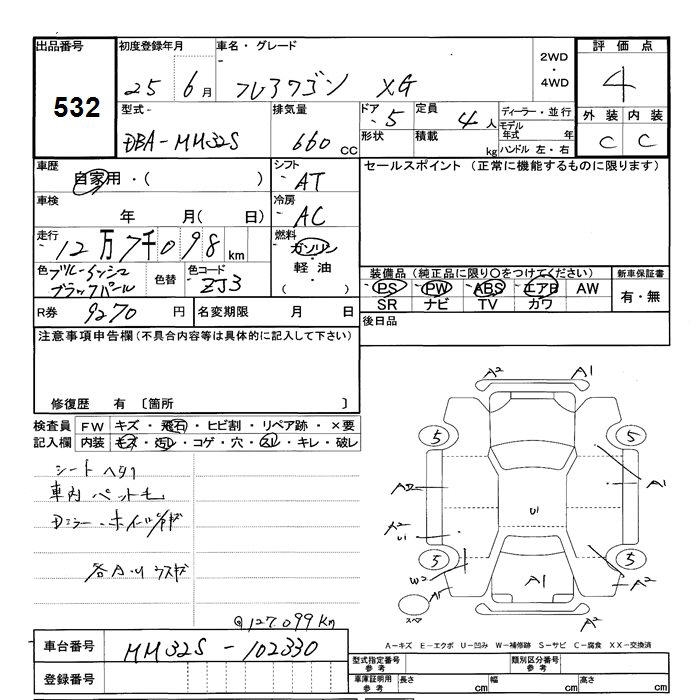 出品番号 初度登録年月 車名・グレード 2WD 評価点
532 25 6月 フレアワゴン XG ・4WD 4
型式 排気量 ドア 定員 ディーラー・並行 外装 内装
DBA-MM32S 660cc 5 4人 モデル年式 年 C C
形状 積載 kg ハンドル 左・右
車歴 シフト セールスポイント(正常に機能するものに限ります)
自家用・( ) AT
車検 冷房
年 月( 日) AC
走行 燃料
12万7千098km ガソリン
色 色替 色コード 軽油 装備品(純正品に限り○をつけてください) 新車保証書
ブラックパール ZJ3 ( ) PS PW ABS エアB AW 有・無
SR ナビ TV カワ
R券 9270円 名変期限 月 日 後日品
注意事項申告欄(不具合内容等は具体的に記入して下さい)
修復歴 有 〔箇所 〕
検査員 FW キズ・飛石・ヒビ割・リペア跡・×要
記入欄 内装 キズ・汚レ・コゲ・穴・スレ・キレ・破レ
シートヘタリ
車内ペット毛
A2 A1
5 5
A1
A2
U1 U1
5 5
W2 A1 A1 A2
スペア A2
127,099Km
A-キズ E-エクボ U-凹み W-補修跡 S-サビ C-腐食 XX-交換済
車台番号 MM32S-102330
型式指定番号 参考 類別区分番号 参考
登録番号 車庫証明用 参考 長さ cm 幅 cm 高さ cm